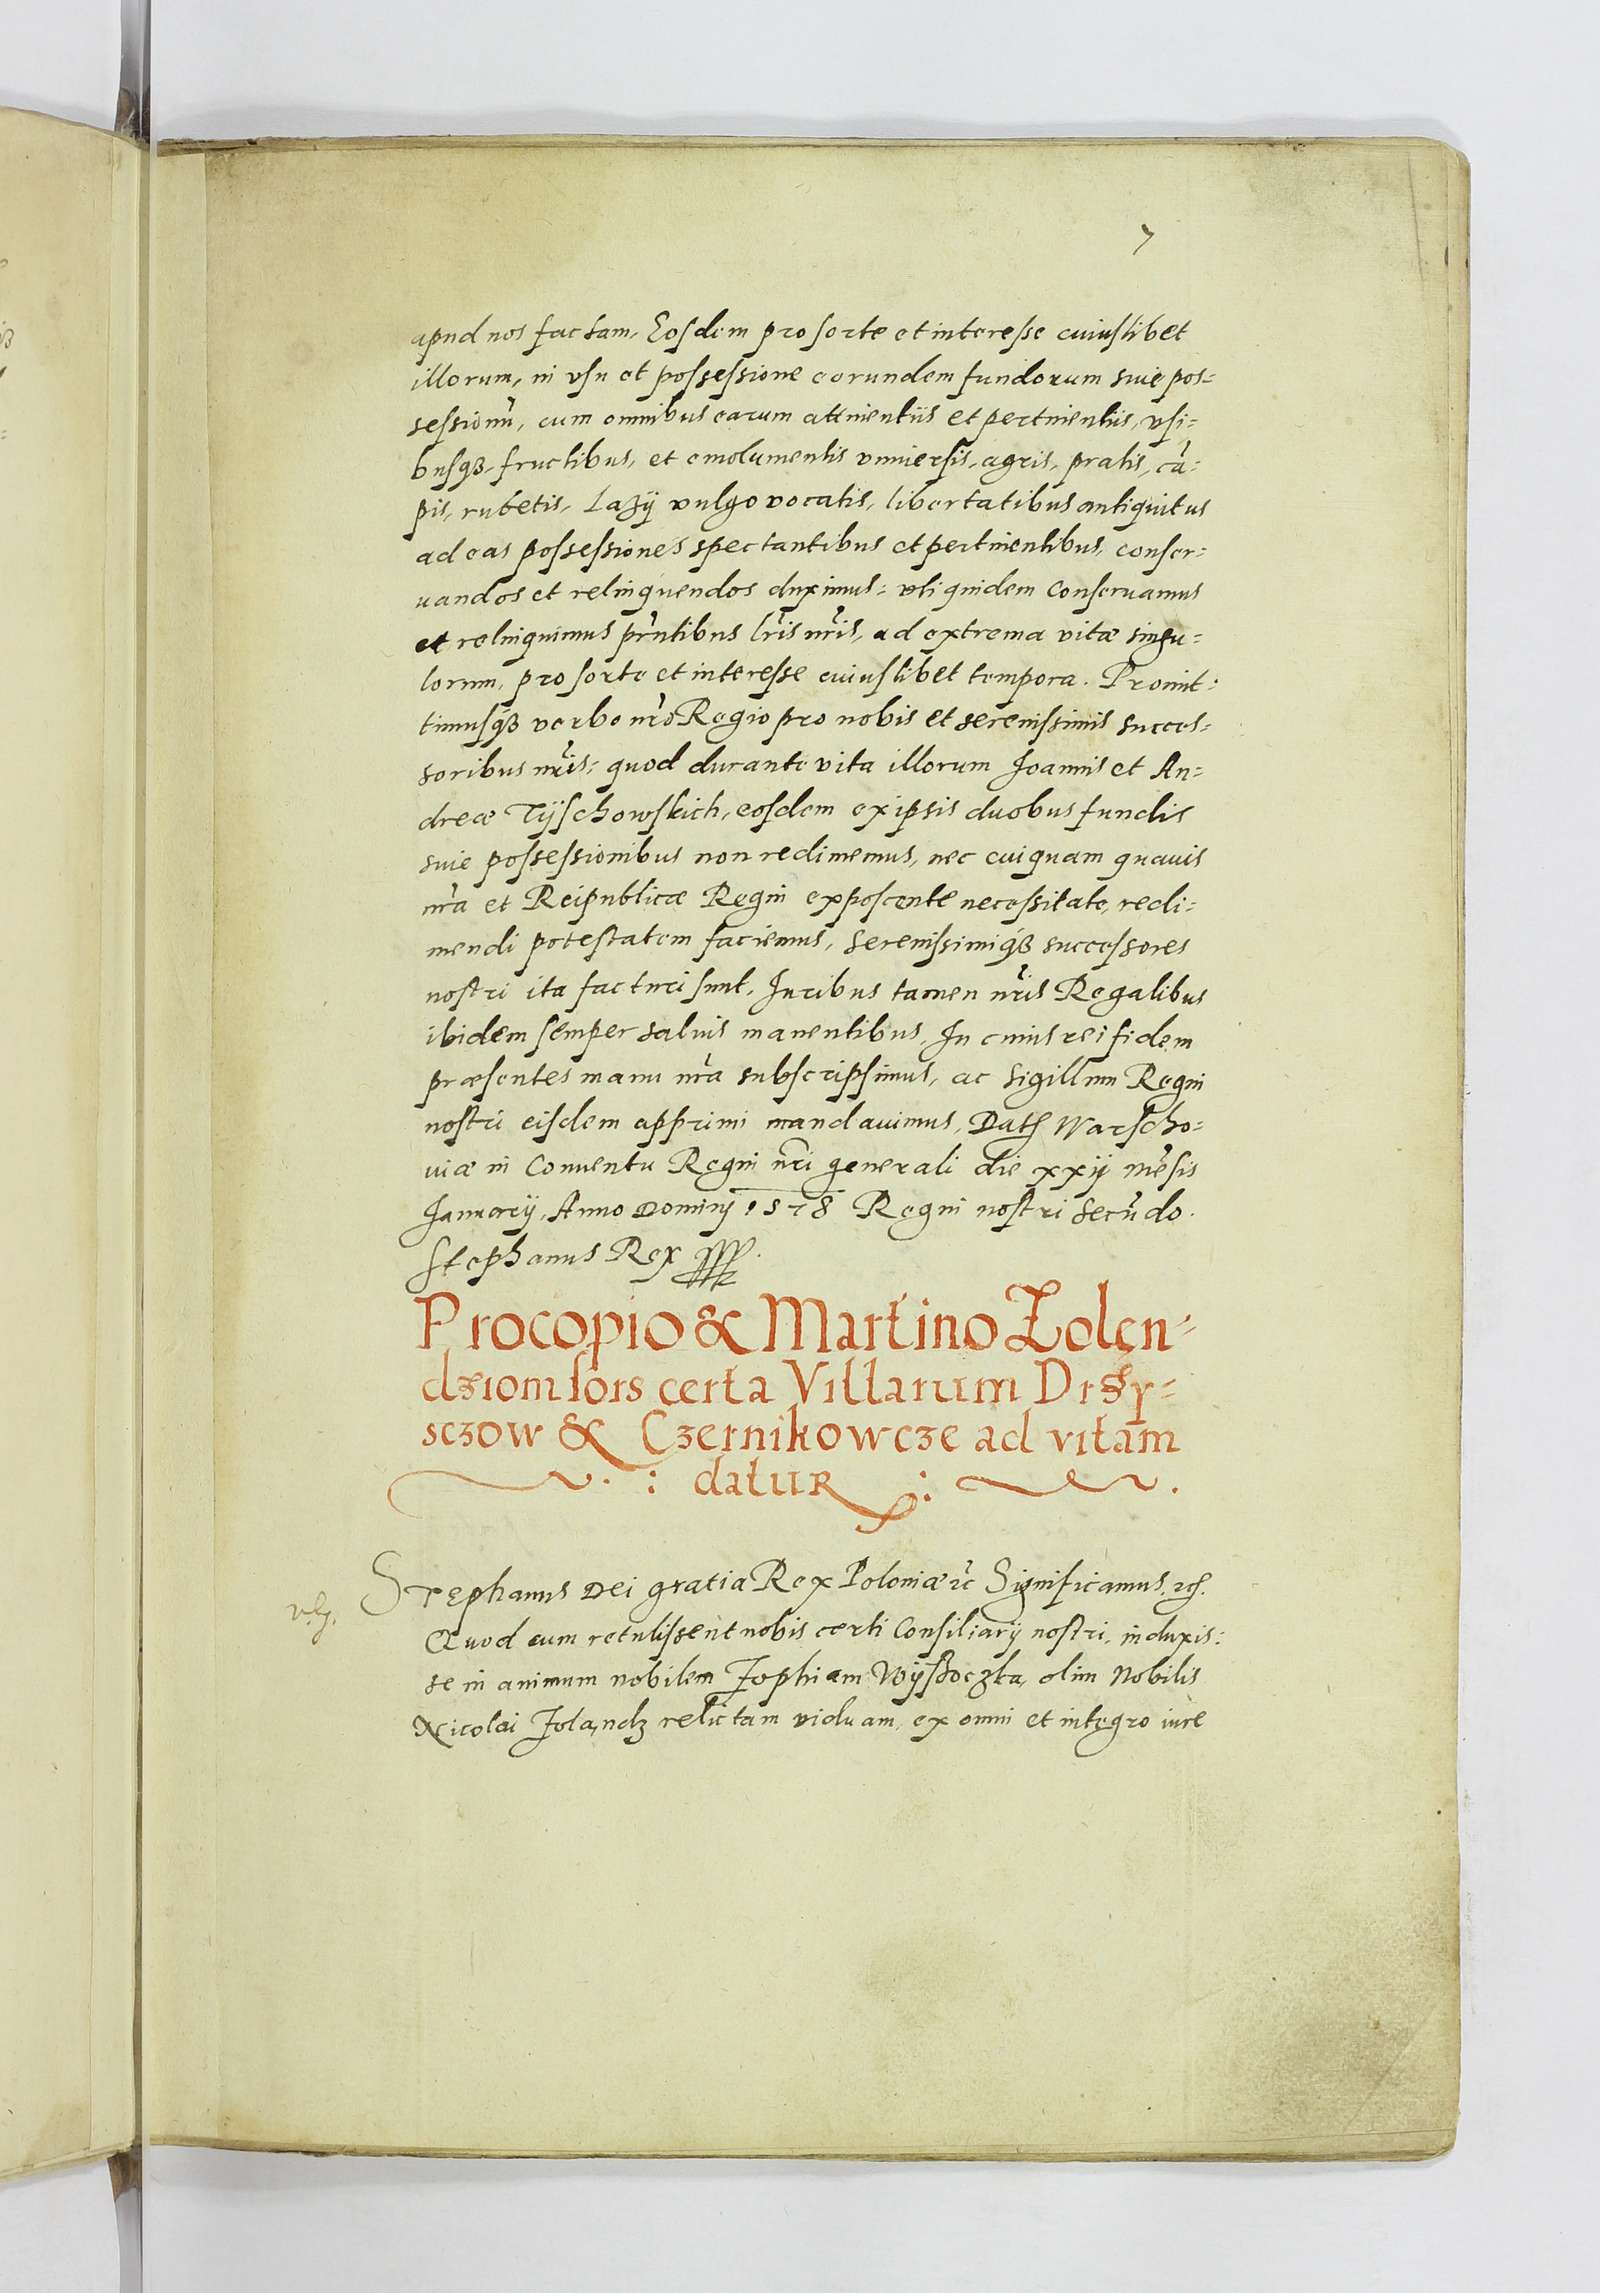 7
apud nos factam, Eosdem pro sorte et interesse cuiuslibet
illorum, in vsu et possessione eorundem fundorum siue pos=
sessionũ, cum omnibus earum attinentiis et pertinentiis, vsi=
busqȝ fructibus, et emolumentis vniuersis, agris, pratis, cã=
pis, rubetis, Lazÿ vulgo vocatis, libertatibus antiquitus
ad eas possessiones spectantibus et pertinentibus, conser=
uandos et relinquendos duximus: vti quidem conseruamus
et relinquimus pr̃ntibus lr̃is nr̃is, ad extrema vitæ singu=
lorum, pro sorte et interesse cuiuslibet tempora. Promit=
timusqȝ verbo nr̃o Regio pro nobis et serenissimis succes=
soribus nr̃is: quod durante vita illorum Joannis et An=
dreæ Tÿschowskich, eosdem ex ipsis duobus fundis
siue possessionibus non redimemus, nec cuiquam quauis
nr̃a et Reipublicæ Regni exposcente necessitate, redi=
mendi potestatem faciemus, Serenissimiqȝ successores
nostri ita facturi sunt, Juribus tamen nr̃is Regalibus
ibidem semper saluis manentibus, In cuius rei fidem
præsentes manu nr̃a subscripsimus, ac Sigillum Regni
nostri eisdem apprimi mandauimus, Datȝ Warscho=
uiæ in Conuentu Regni nr̃i generali die xxij mẽsis
Januarij, Anno Dominj 1578 Regni nostri Secũdo.
Stephanus Rex
Procopio & Martino Zolen=
dziom sors certa Villarum Drzy=
sczow & Czernikowcze ad vitam
: datur :
Stephanus Dei gratia Rex Poloniæ ꝛc̃ Significamus, ꝛcȝ.
Quod cum retulissent nobis certi Consiliarij nostri, induxis=
se in animum nobilem Zophiam Wÿssoczka, olim Nobilis
Nicolai Zolandz relictam viduam, ex omni et integro iure